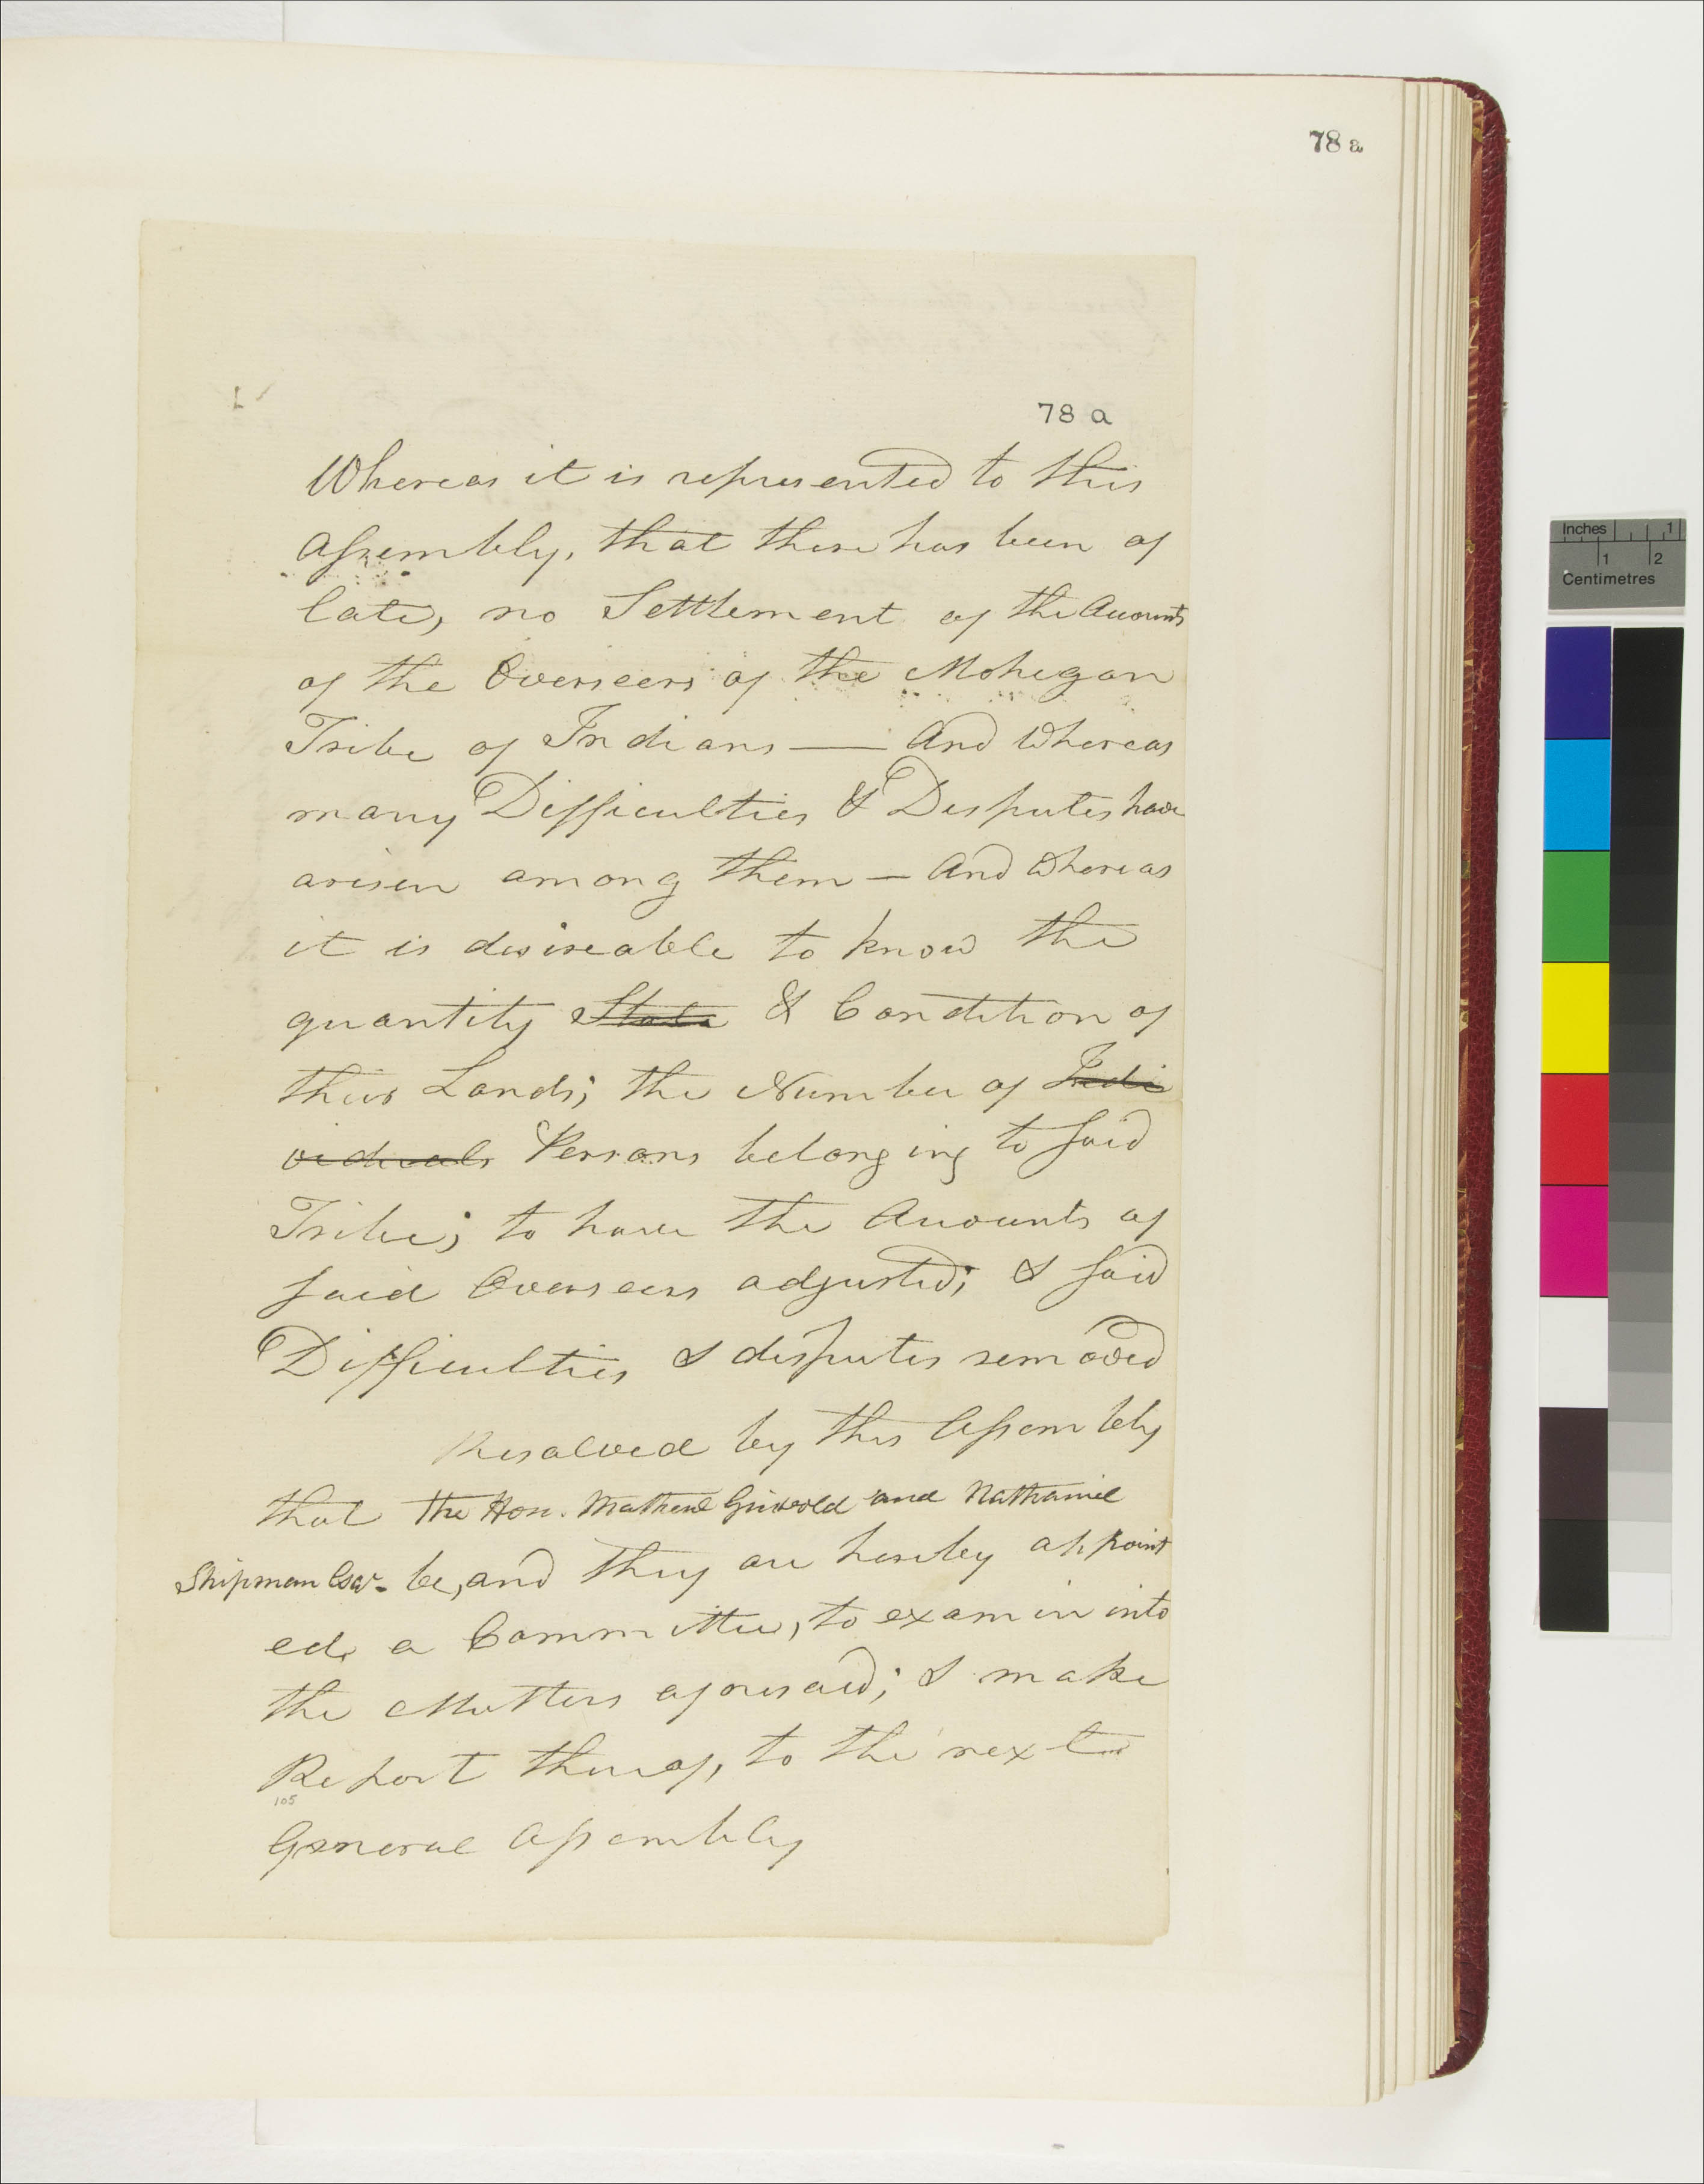 78 a
78 a
Whereas it is represented to this
Assembly, that there has been of
late, no Settlement of the Accounts
of the Overseers of the Mohegan
Tribe of Indians — And Whereas
many Difficulties & Desputes have
arisen among them — And Whereas
it is desireable to know the
quantity State & Condition of
their Lands; the Number of Indi
viduals Persons belonging to said
Tribe; to have the Accounts of
said Overseers adjusted; & said
Difficulties & disputes removed
Resolved by this Assembly
that the Hon. Mathew Griswold and Nathaniel
Shipman Esqr. be, and they are hereby appoint
ed, a Committee, to examin into
the Matters aforesaid; & make
Report thereof, to the next
105
General Assembly
Inches 1
1 2
Centimetres